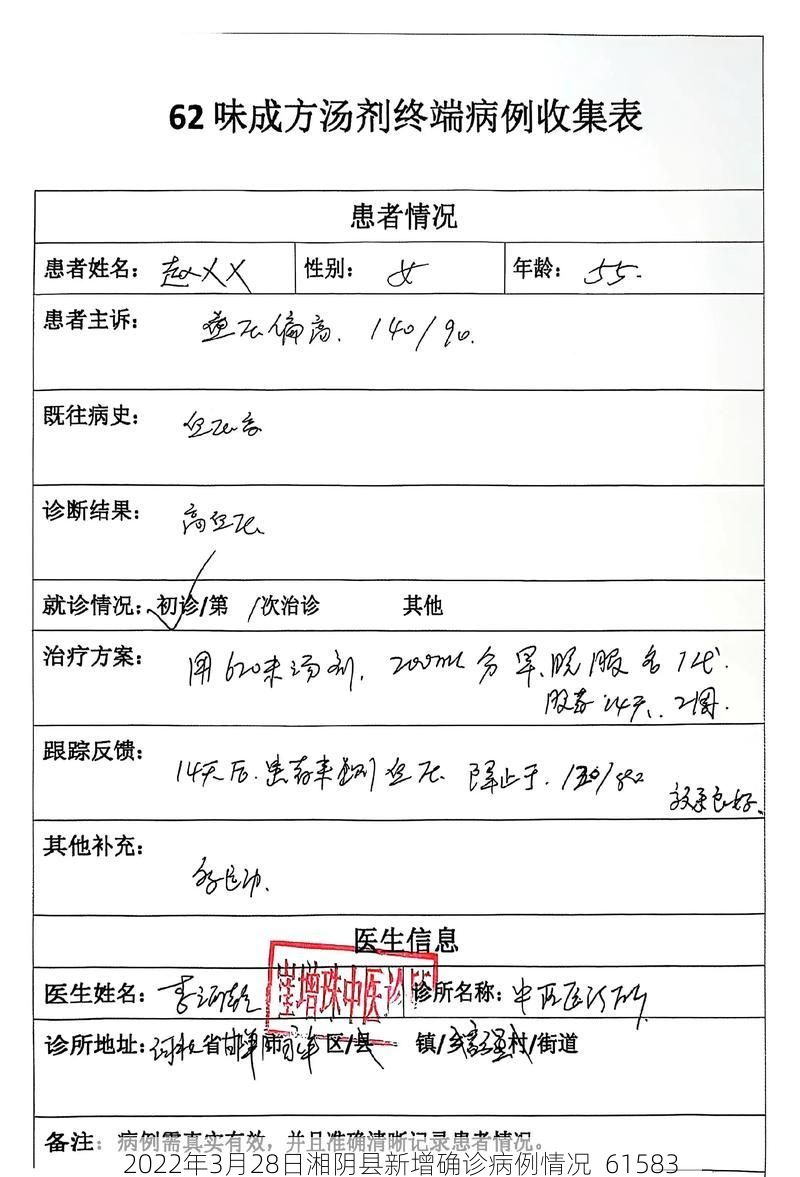 62味成方汤剂终端病例收集表
患者情况
患者姓名：赵XX 性别：女 年龄：55.
患者主诉：血压偏高. 140/90.
既往病史：血压高
诊断结果：高血压
就诊情况：初诊/第 /次治诊 其他
治疗方案：用62味汤剂，200ml分早、晚服各1代.
服药14天、2周.
跟踪反馈：14天后.患者来测血压
效果良好、
其他补充：
医生信息
医生姓名：李 崔增珠中医诊所 诊所名称：中医诊所
诊所地址：河北省邯郸市 区/县 镇/乡 村/街道
备注：病例需真实有效，并且准确清晰记录患者情况。
2022年3月28日湘阴县新增确诊病例情况 61583